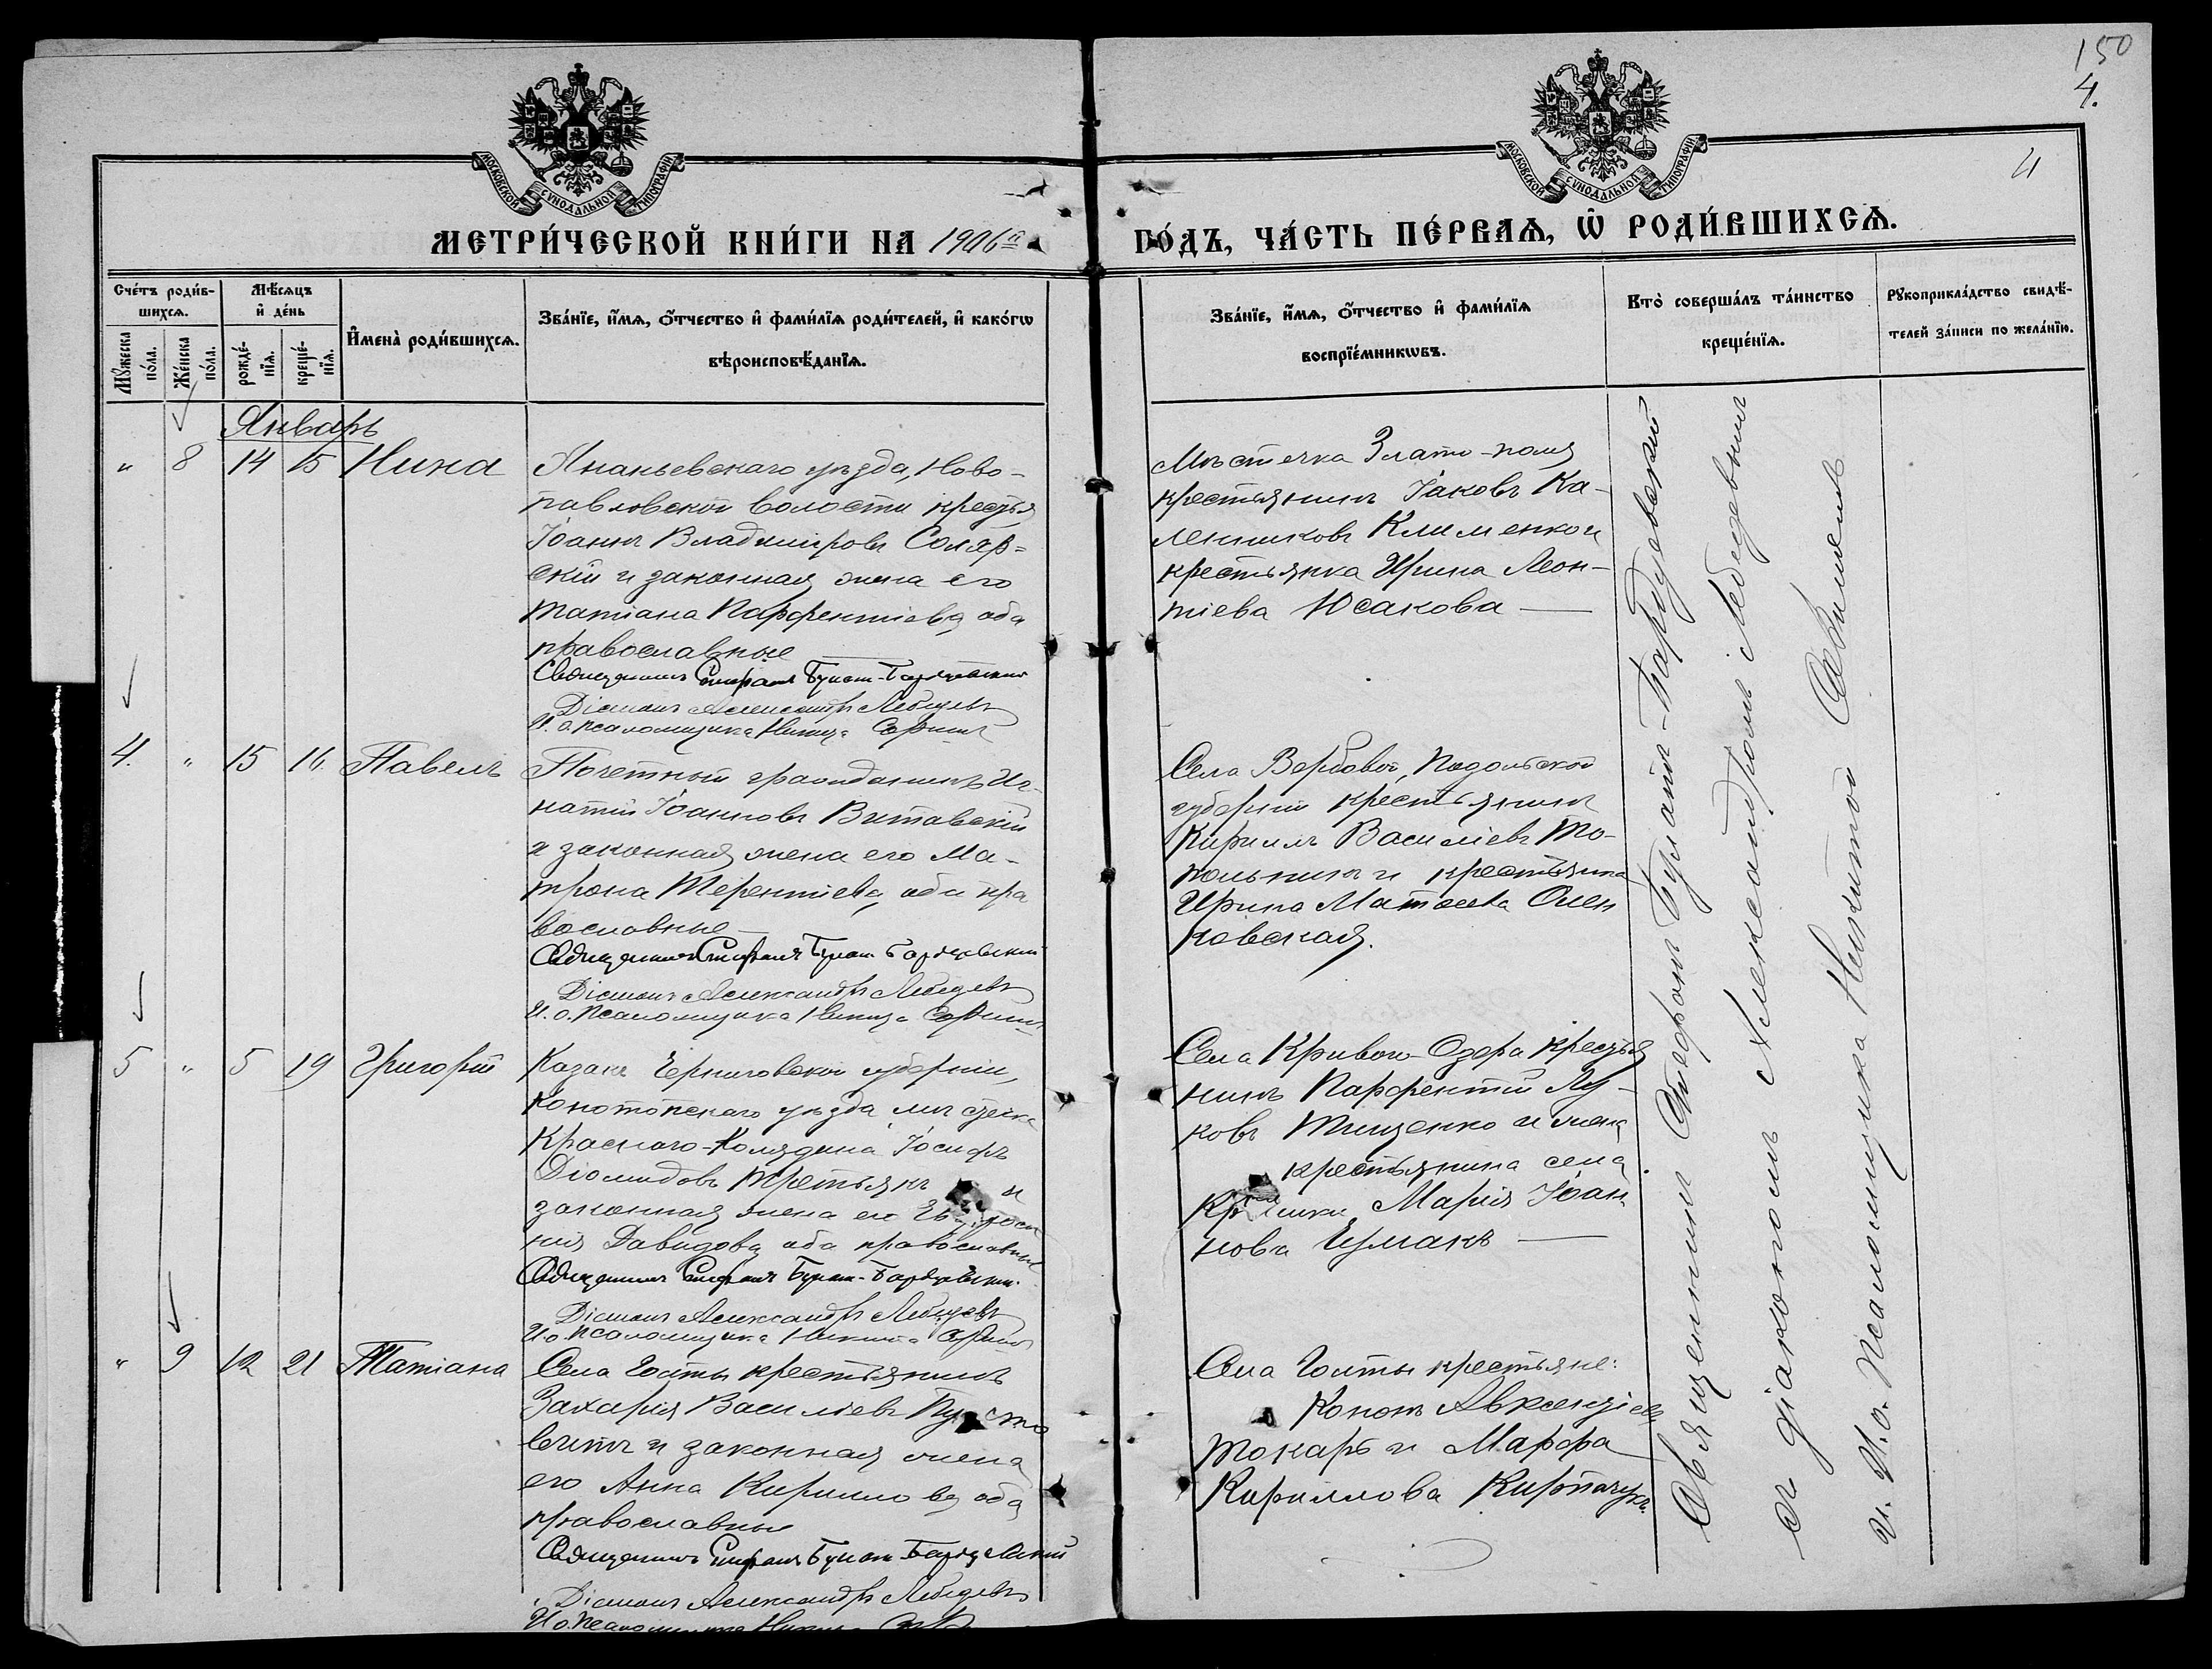 150
4.
4
МОСКОВСКОЙ СѴНОДАЛЬНОЙ ТИПОГРАФІИ
МОСКОВСКОЙ СѴНОДАЛЬНОЙ ТИПОГРАФІИ
МЕТРИ́ЧЕСКОЙ КНИ́ГИ НА 1906й
ГО́ДЪ, ЧА́СТЬ ПЕ́РВАѦ, Ѽ РОДИ́ВШИХСѦ.
Сче́тъ роди́в-
шихсѧ.
Мꙋжеска по́ла.
Же́нска по́ла.
Мѣ́сѧцъ
и҆ де́нь
рожде́-
нїѧ.
креще́-
нїѧ.
И҆мена̀ роди́вшихсѧ.
Зва́нїе, и҆́мѧ, о҆́тчество и҆ фами́лїѧ роди́телей, и҆ како́гѡ
вѣроисповѣ́данїѧ.
Зва́нїе, и҆́мѧ, о҆́тчество и҆ фами́лїѧ
воспрїе́мникѡвъ.
Кто̀ соверша́лъ та́инство
креще́нїѧ.
Рꙋкоприкла́дство свидѣ́-
телей за́писи по жела́нїю.
Январь
" 8 14 15 Нина
Ананьевскаго уѣзда, Ново-
павловской волости крестья
Іоаннъ Владиміровъ Соляр=
скій и законная жена его
Татіана Парфентіева, оба
православные
Священникъ Стефанъ Булат-Бардуевскій
Діаконъ Александръ Лебедевъ
И. о. псаломщика Никита
Мѣстечка Злато-поля
крестьянинъ Іаковъ Ка-
ленниковъ Клименко и
крестьянка Ирина Леон-
тіева Юсакова
4. " 15 16 Павелъ
Почетный гражданинъ Иг-
натій Іоанновъ Витавскій
и законная жена его Ма-
трона Терентіева, оба пра
вославные
Священникъ Стефанъ Булат-Бардуевскій
Діаконъ Александръ Лебедевъ
И. о. псаломщика Никита
Села Вербовой, Подольской
губерніи крестьянинъ
Кириллъ Василіевъ То-
польникъ и крестьянка
Ирина Матѳеева Олен
ковская.
5 " 5 19 Григорій
Казакъ Черниговской губерніи,
Конотопскаго уѣзда, мѣстечка
Краснаго-Колядина Іосифъ
Діомидовъ Третьякъ и
законная жена его Евфроси
нія Давидова, оба православные
Священникъ Стефанъ Булат-Бардуевскій
Діаконъ Александръ Лебедевъ
И. о. псаломщика Никита
Села Кривого-Озера крестья
нинъ Парфентій Лу-
ковъ Тищенко и жена
крестьянина села
Марія Іоан
нова Чумакъ
" 9 12 21 Татіана
Села Голты крестьянинъ
Захарія Василіевъ
и законная жена
его Анна Кириллова, оба
православные
Священникъ Стефанъ Булат-Бардуевскій
Діаконъ Александръ Лебедевъ
И. о. псаломщика Никита
Села Голты крестьяне:
Кононъ Авксентіевъ
Токарь и Марфа
Кириллова Кирпачукъ
Священникъ Стефанъ Булатъ-Бардуевскій
съ діакономъ Александромъ Лебедевымъ
и И. о. псаломщика Никитой